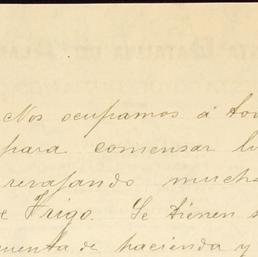 Nos ocupamos á
para comensar
rebajando
e Trigo. Se tienen
cuenta de hacienda y